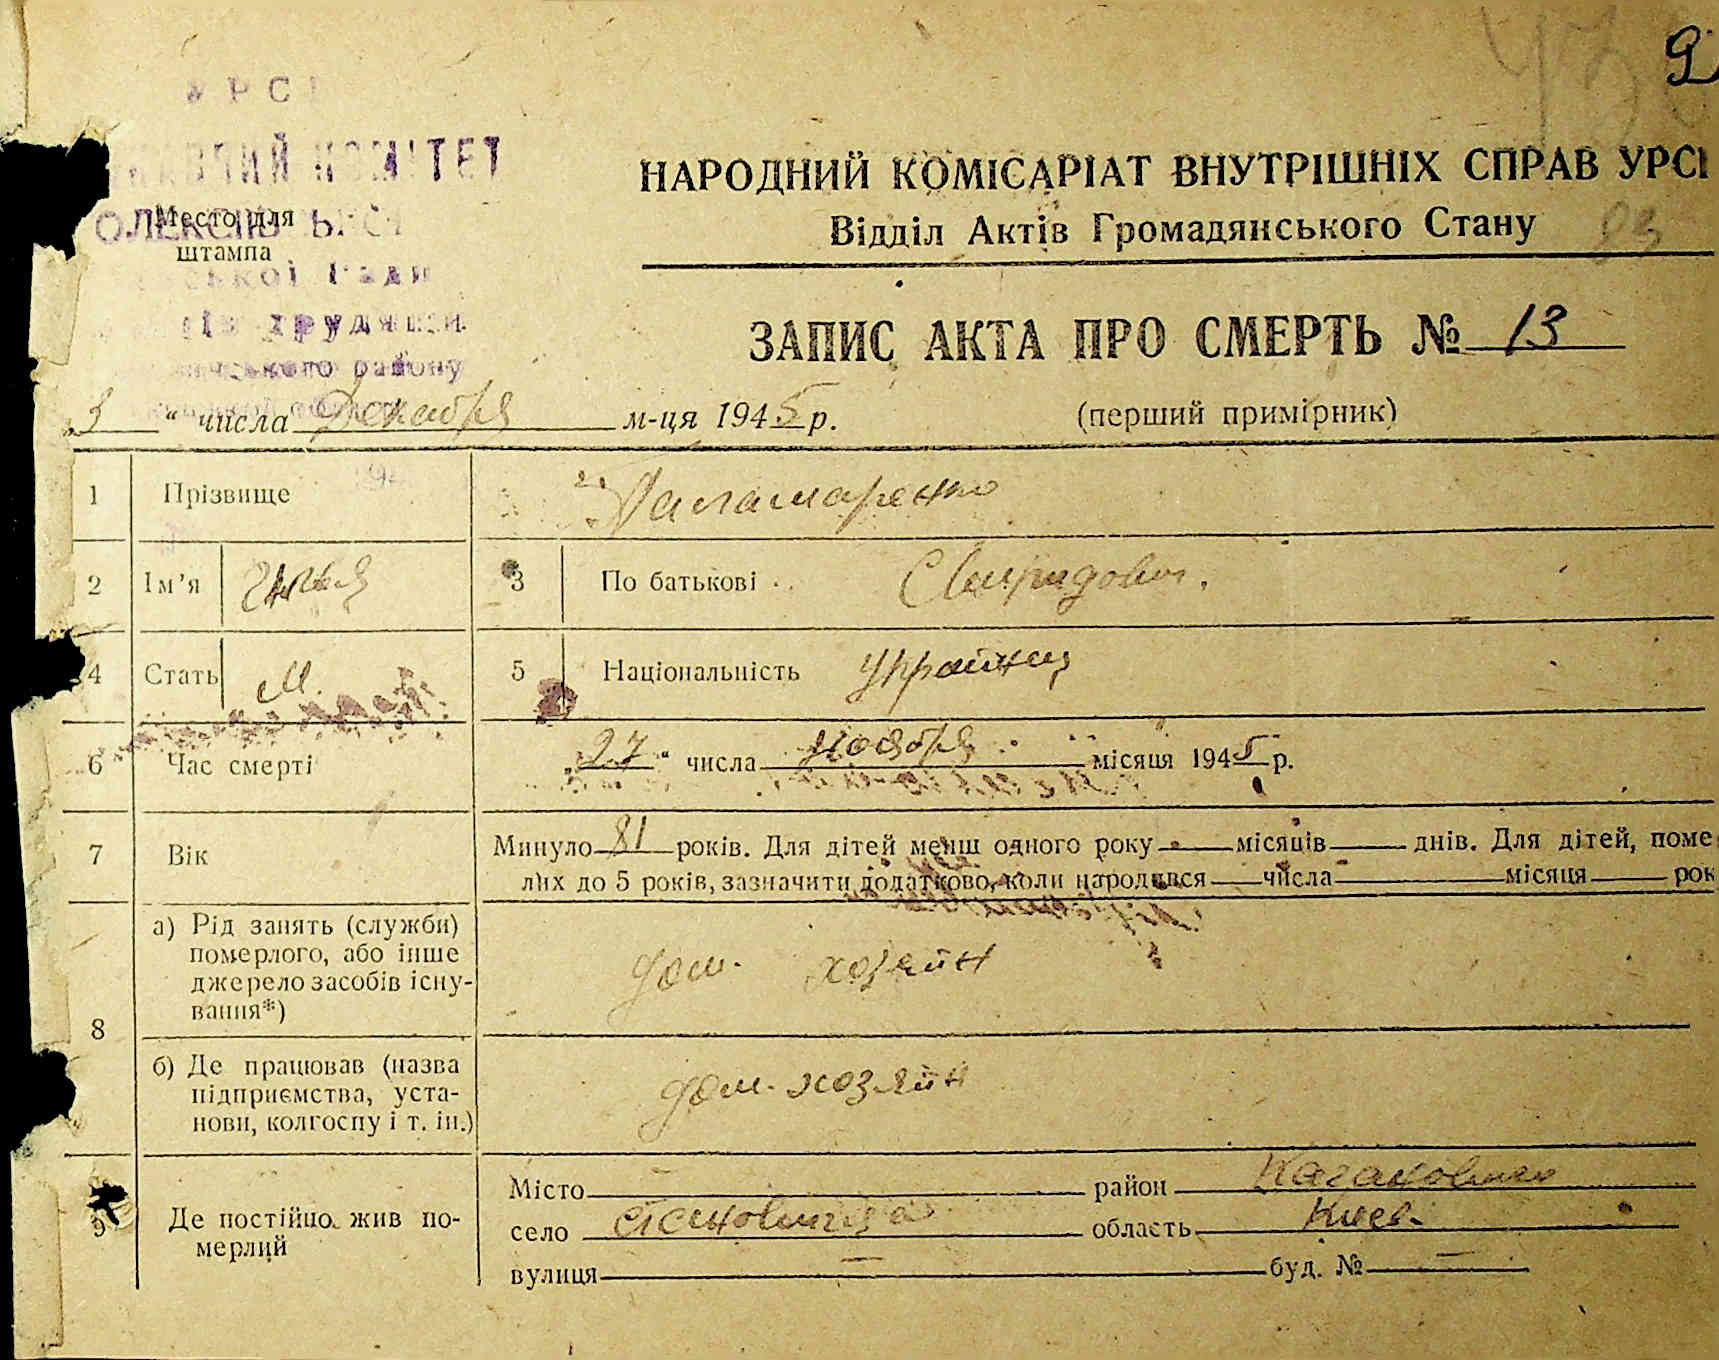 9
НАРОДНИЙ КОМІСАРІАТ ВНУТРІШНІХ СПРАВ УРСР
Відділ Актів Громадянського Стану
КОМІТЕТ
Место для
штампа
ради
трудящи
району
ЗАПИС АКТА ПРО СМЕРТЬ № 13
„3“ числа Декабря м-ця 1945 р.
(перший примірник)
1 Прізвище Паламаренко
2 Ім'я 3 По батькові Свиридович.
4 Стать М. 5 Національність Украинец
6 Час смерті „27“ числа ноября місяця 1945 р.
7 Вік Минуло 81 років. Для дітей менш одного року — місяців — днів. Для дітей, поме
лих до 5 років, зазначити додатково, коли народився — числа — місяця — рок
8 а) Рід занять (служби)
померлого, або інше
джерело засобів існу-
вання*)
дом. хозяйн
б) Де працював (назва
підприємства, уста-
нови, колгоспу і т. ін.)
дом. хозяйн
9 Де постійно жив по-
мерлий
Місто — район
село область Киев.
вулиця — буд. № —